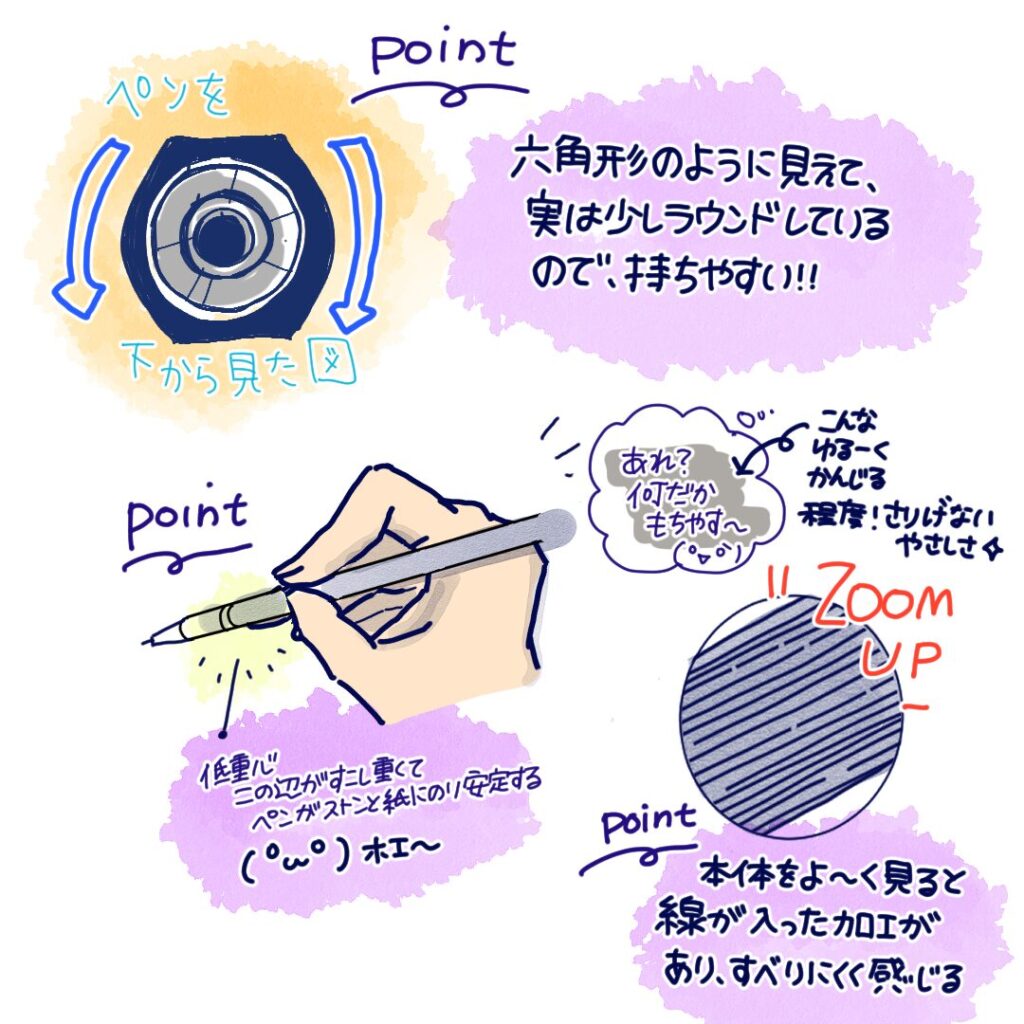 point
ペンを
下から見た図
六角形のように見えて、
実は少しラウンドしている
ので、持ちやすい!!
あれ?
何だか
もちやす〜
(°▽°)
こんな
ゆるーく
かんじる
程度!さりげない
やさしさ✧
point
低重心
この辺がすこし重くて
ペンがストンと紙にのり安定する
(°ω°)ホエ〜
ZOOM
UP
point
本体をよ〜く見ると
線が入った加工が
あり、すべりにくく感じる